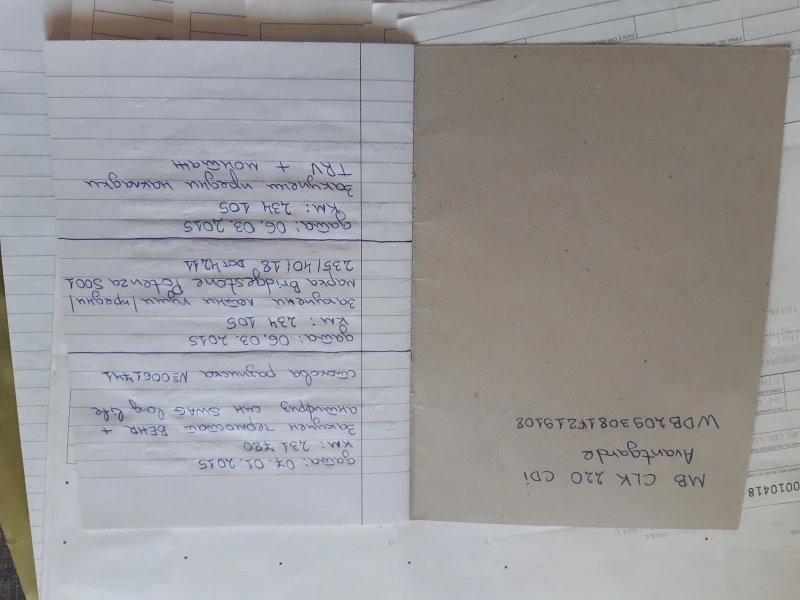 MB CLK 220 CDi
Avantgarde
WDB2093081F219108
дата: 07.01.2015
КМ: 231 720
Закупен термостат BEHR +
антифриз син SWAG long life
стокова разписка №0061741
дата: 06.03.2015
КМ: 234 105
Закупени летни гуми /предни/
марка Bridgestone Potenza S001
235/40/18 DOT4211
дата: 06.03.2015
КМ: 234 105
Закупени предни накладки
TRV + монтаж
0010418